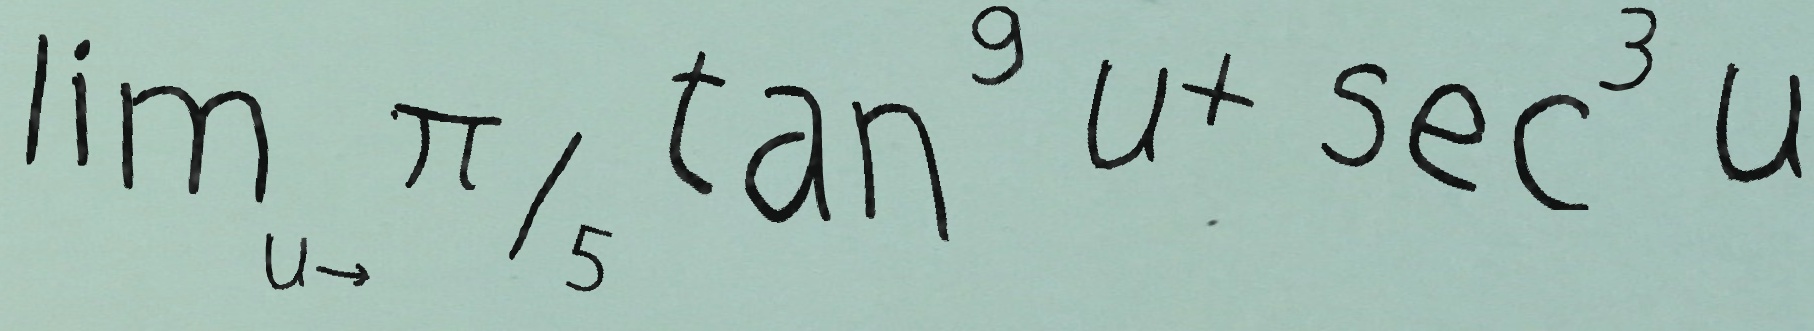 lim u→ π/5 tan^9 u + sec^3 u